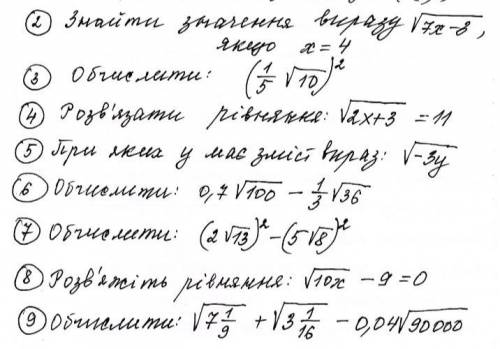 ② Знайти значення виразу √(7x-3),
якщо x=4
③ Обчислити: (1/5 √10)²
④ Розв'язати рівняння: √(2x+3) = 11
⑤ При яких y має зміст вираз: √(-3y)
⑥ Обчислити: 0,7√100 - 1/3 √36
⑦ Обчислити: (2√13)² - (5√8)²
⑧ Розв'яжіть рівняння: √(10x) - 9 = 0
⑨ Обчислити: √(7 1/9) + √(3 1/16) - 0,04√90000